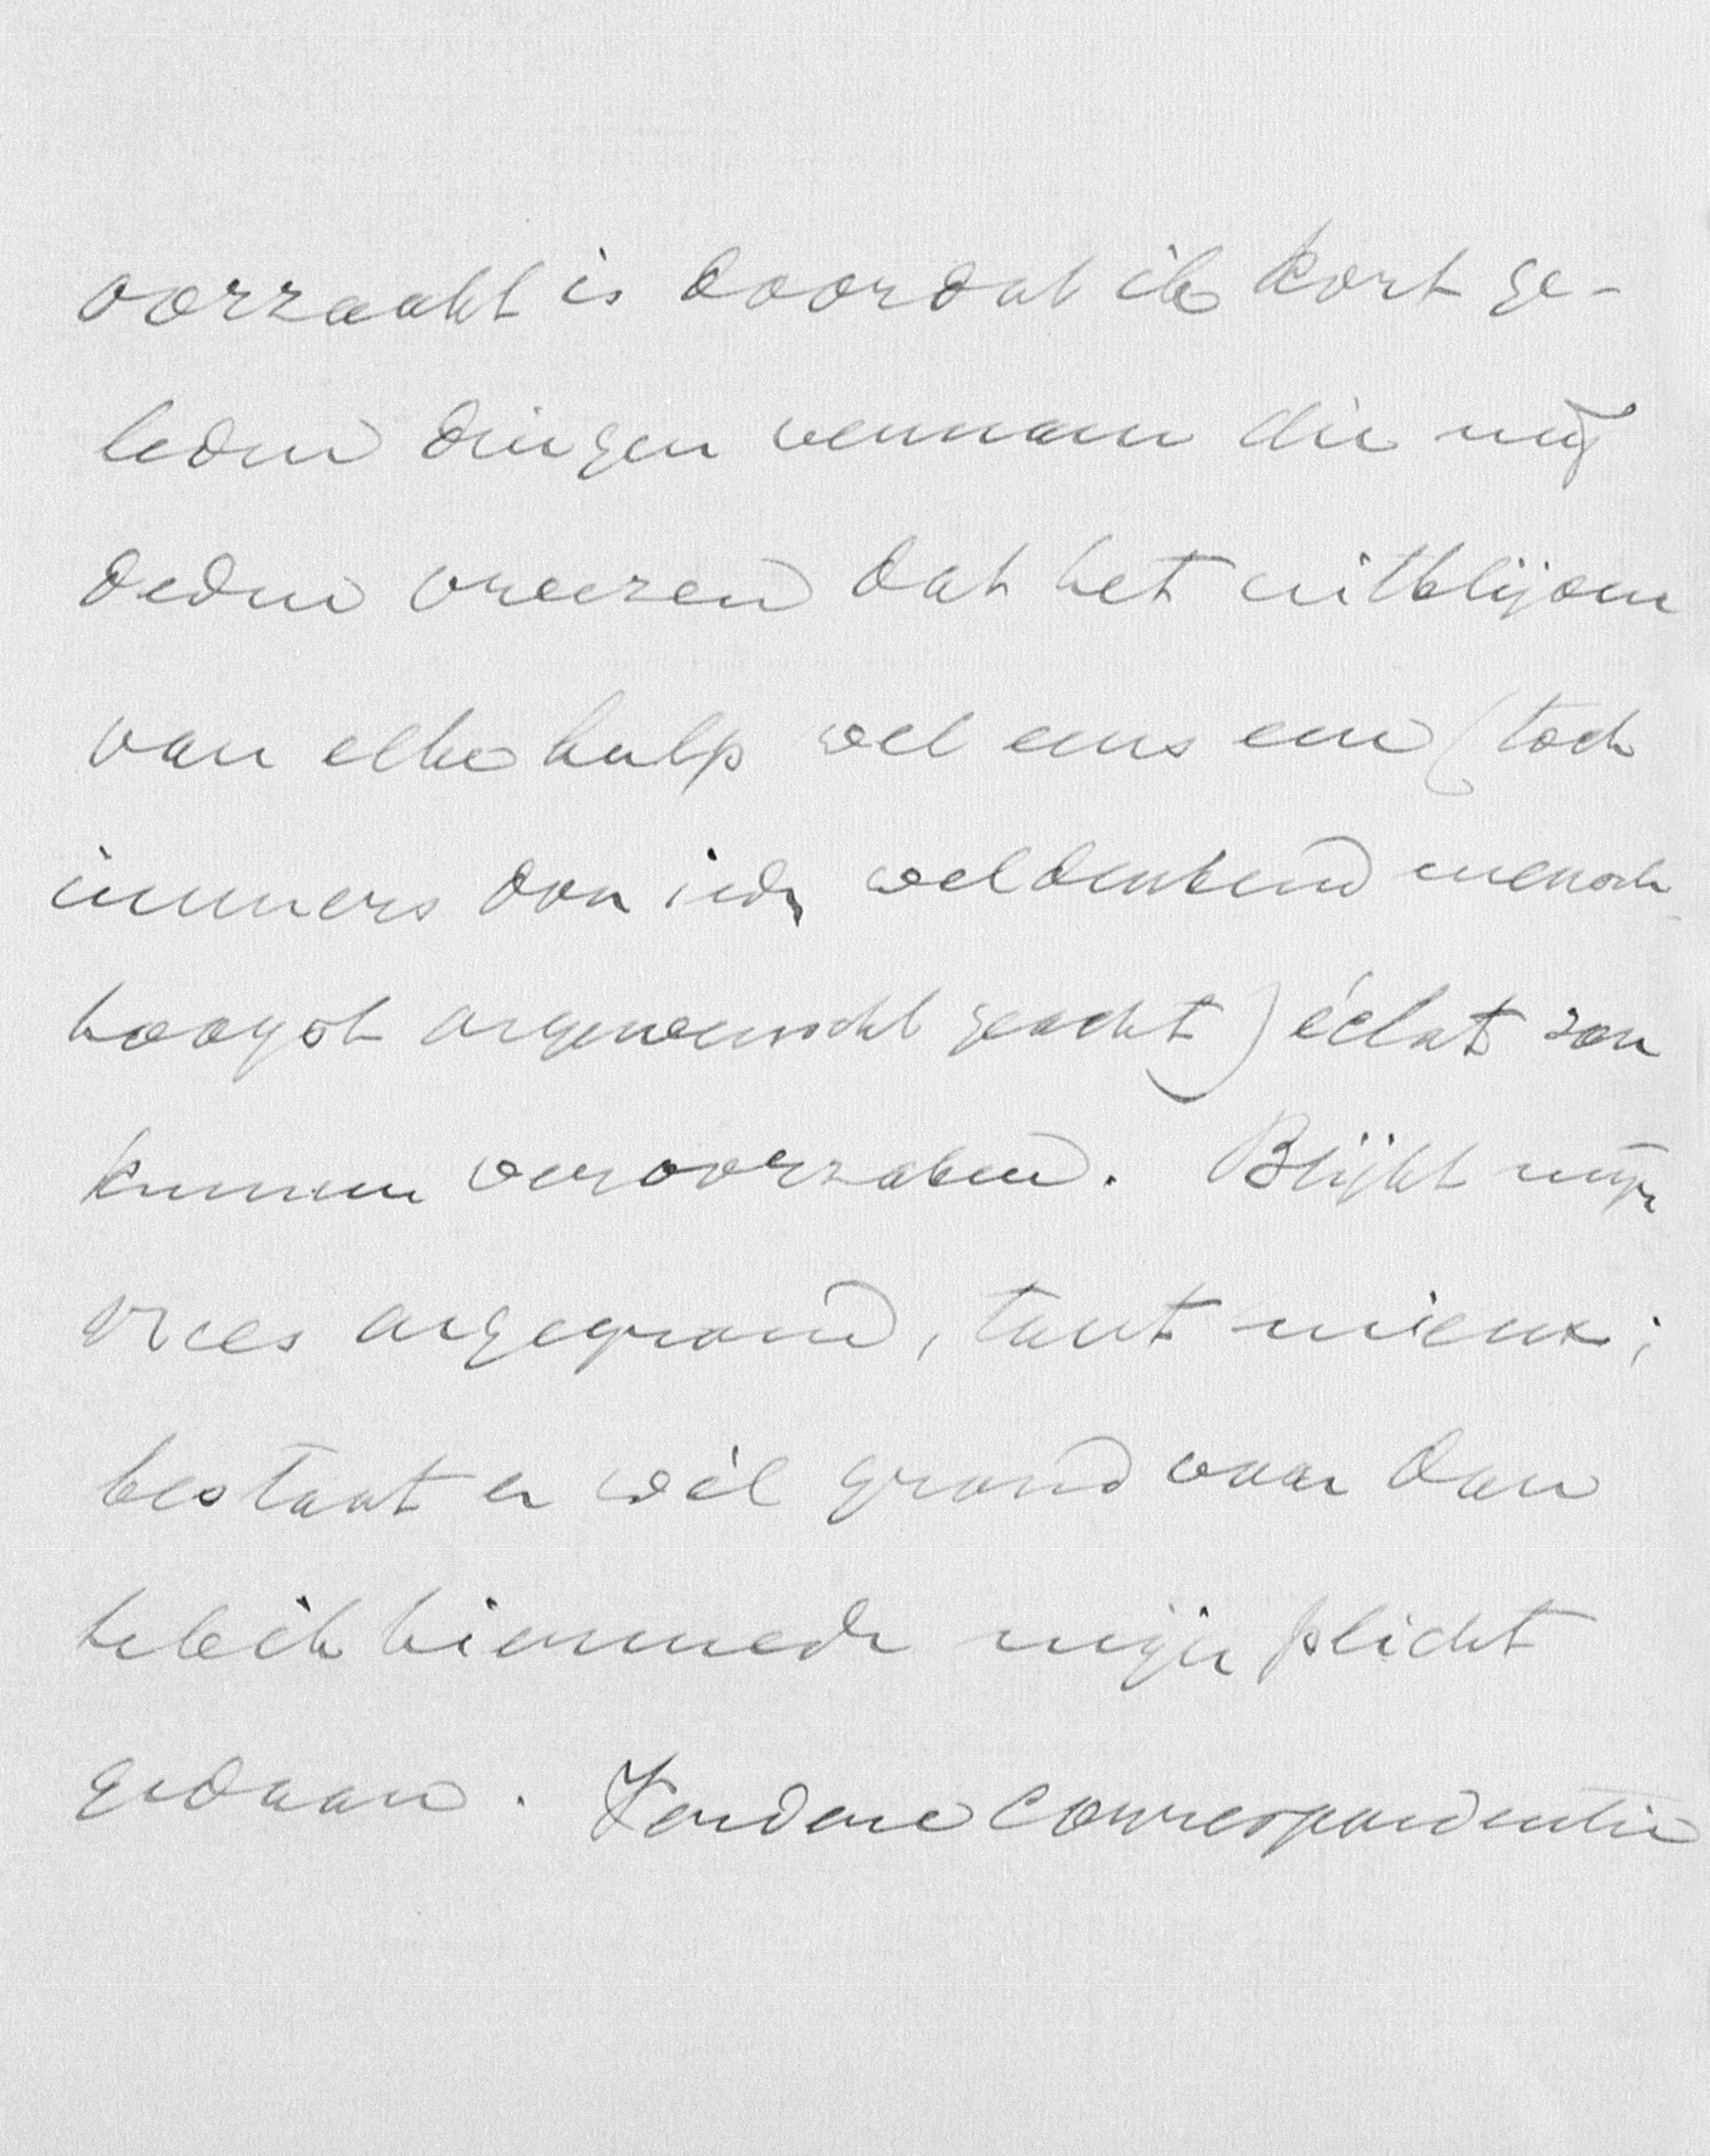 oorzaakt is doordat ik kort ge-
leden dingen vernam die mij
deden vreezen dat het uitblijven
van elke hulp wel eens een (toch
immers door ieder weldenkend mensch
hoogst ongewenscht geacht) éclat zou
kunnen veroorzaken. Blijkt mijn
vrees ongegrond, tant mieux;
bestaat er wèl grond voor dan
heb ik hiermede mijn plicht
gedaan. Verdere correspondentie